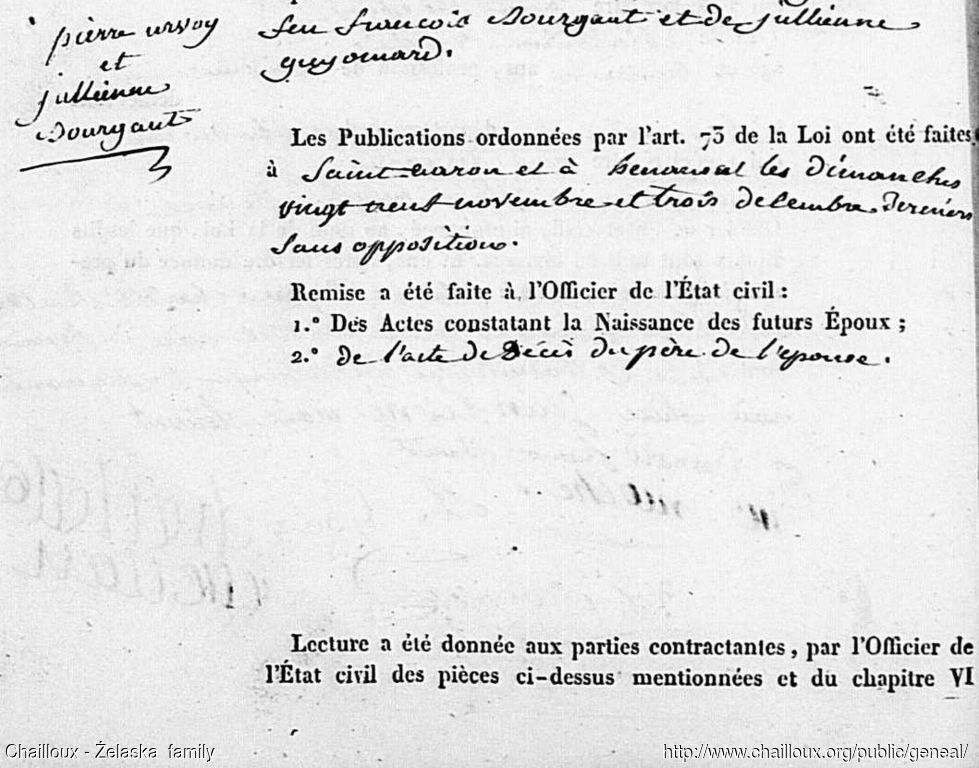 pierre urvoy
et
jullienne
Dourgaut
feu francois Dourgaut et de jullienne
guyomard.
Les Publications ordonnées par l'art. 73 de la Loi ont été faites
à Saint-aaron et à henansal les dimanches
vingt neuf novembre et trois decembre derniers
Sans opposition.
Remise a été faite à l'Officier de l'État civil :
1.° Des Actes constatant la Naissance des futurs Époux ;
2.° de l'acte de Décès du père de l'epouse.
Lecture a été donnée aux parties contractantes, par l'Officier de
l'État civil des pièces ci-dessus mentionnées et du chapitre VI
Chailloux - Želaska family
http://www.chailloux.org/public/geneal/